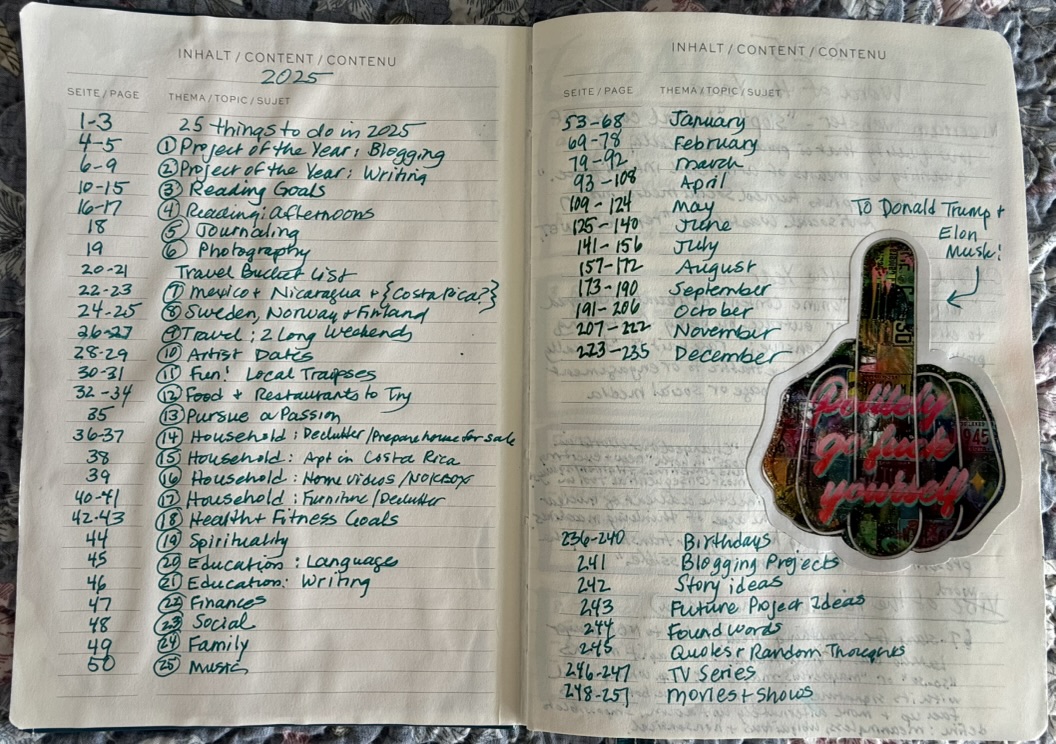 INHALT / CONTENT / CONTENU
2025
SEITE / PAGE THEMA / TOPIC / SUJET
1-3 25 things to do in 2025
4-5 ① Project of the Year: Blogging
6-9 ② Project of the Year: Writing
10-15 ③ Reading Goals
16-17 ④ Reading: Afternoons
18 ⑤ Journaling
19 ⑥ Photography
20-21 Travel Bucket List
22-23 ⑦ Mexico + Nicaragua + {Costa Rica?}
24-25 ⑧ Sweden, Norway + Finland
26-27 ⑨ Travel: 2 Long Weekends
28-29 ⑩ Artist Dates
30-31 ⑪ Fun! Local Traipses
32-34 ⑫ Food + Restaurants to Try
35 ⑬ Pursue a Passion
36-37 ⑭ Household: Declutter/Prepare house for sale
38 ⑮ Household: Apt in Costa Rica
39 ⑯ Household: Home videos /
40-41 ⑰ Household: Furniture/Declutter
42-43 ⑱ Health + Fitness Goals
44 ⑲ Spirituality
45 ⑳ Education: Languages
46 ㉑ Education: Writing
47 ㉒ Finances
48 ㉓ Social
49 ㉔ Family
50 ㉕ Music
INHALT / CONTENT / CONTENU
SEITE / PAGE THEMA / TOPIC / SUJET
53-68 January
69-78 February
79-92 March
93-108 April
109-124 May
125-140 June
141-156 July
157-172 August
173-190 September
191-206 October
207-222 November
223-235 December
To Donald Trump +
Elon
Musk!
Politely
go fuck
yourself
236-240 Birthdays
241 Blogging Projects
242 Story ideas
243 Future Project Ideas
244 Found Words
245 Quotes + Random Thoughts
246-247 TV Series
248-251 Movies + Shows